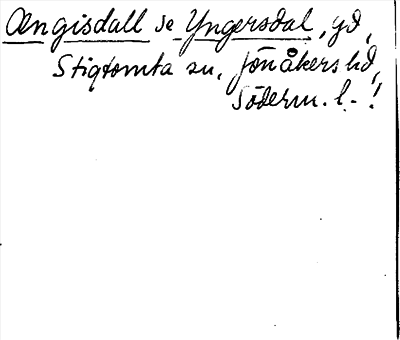 Ængisdall se Yngersdal, gd,
Stigtomta sn, Jönåkers hd,
Söderm. l. !